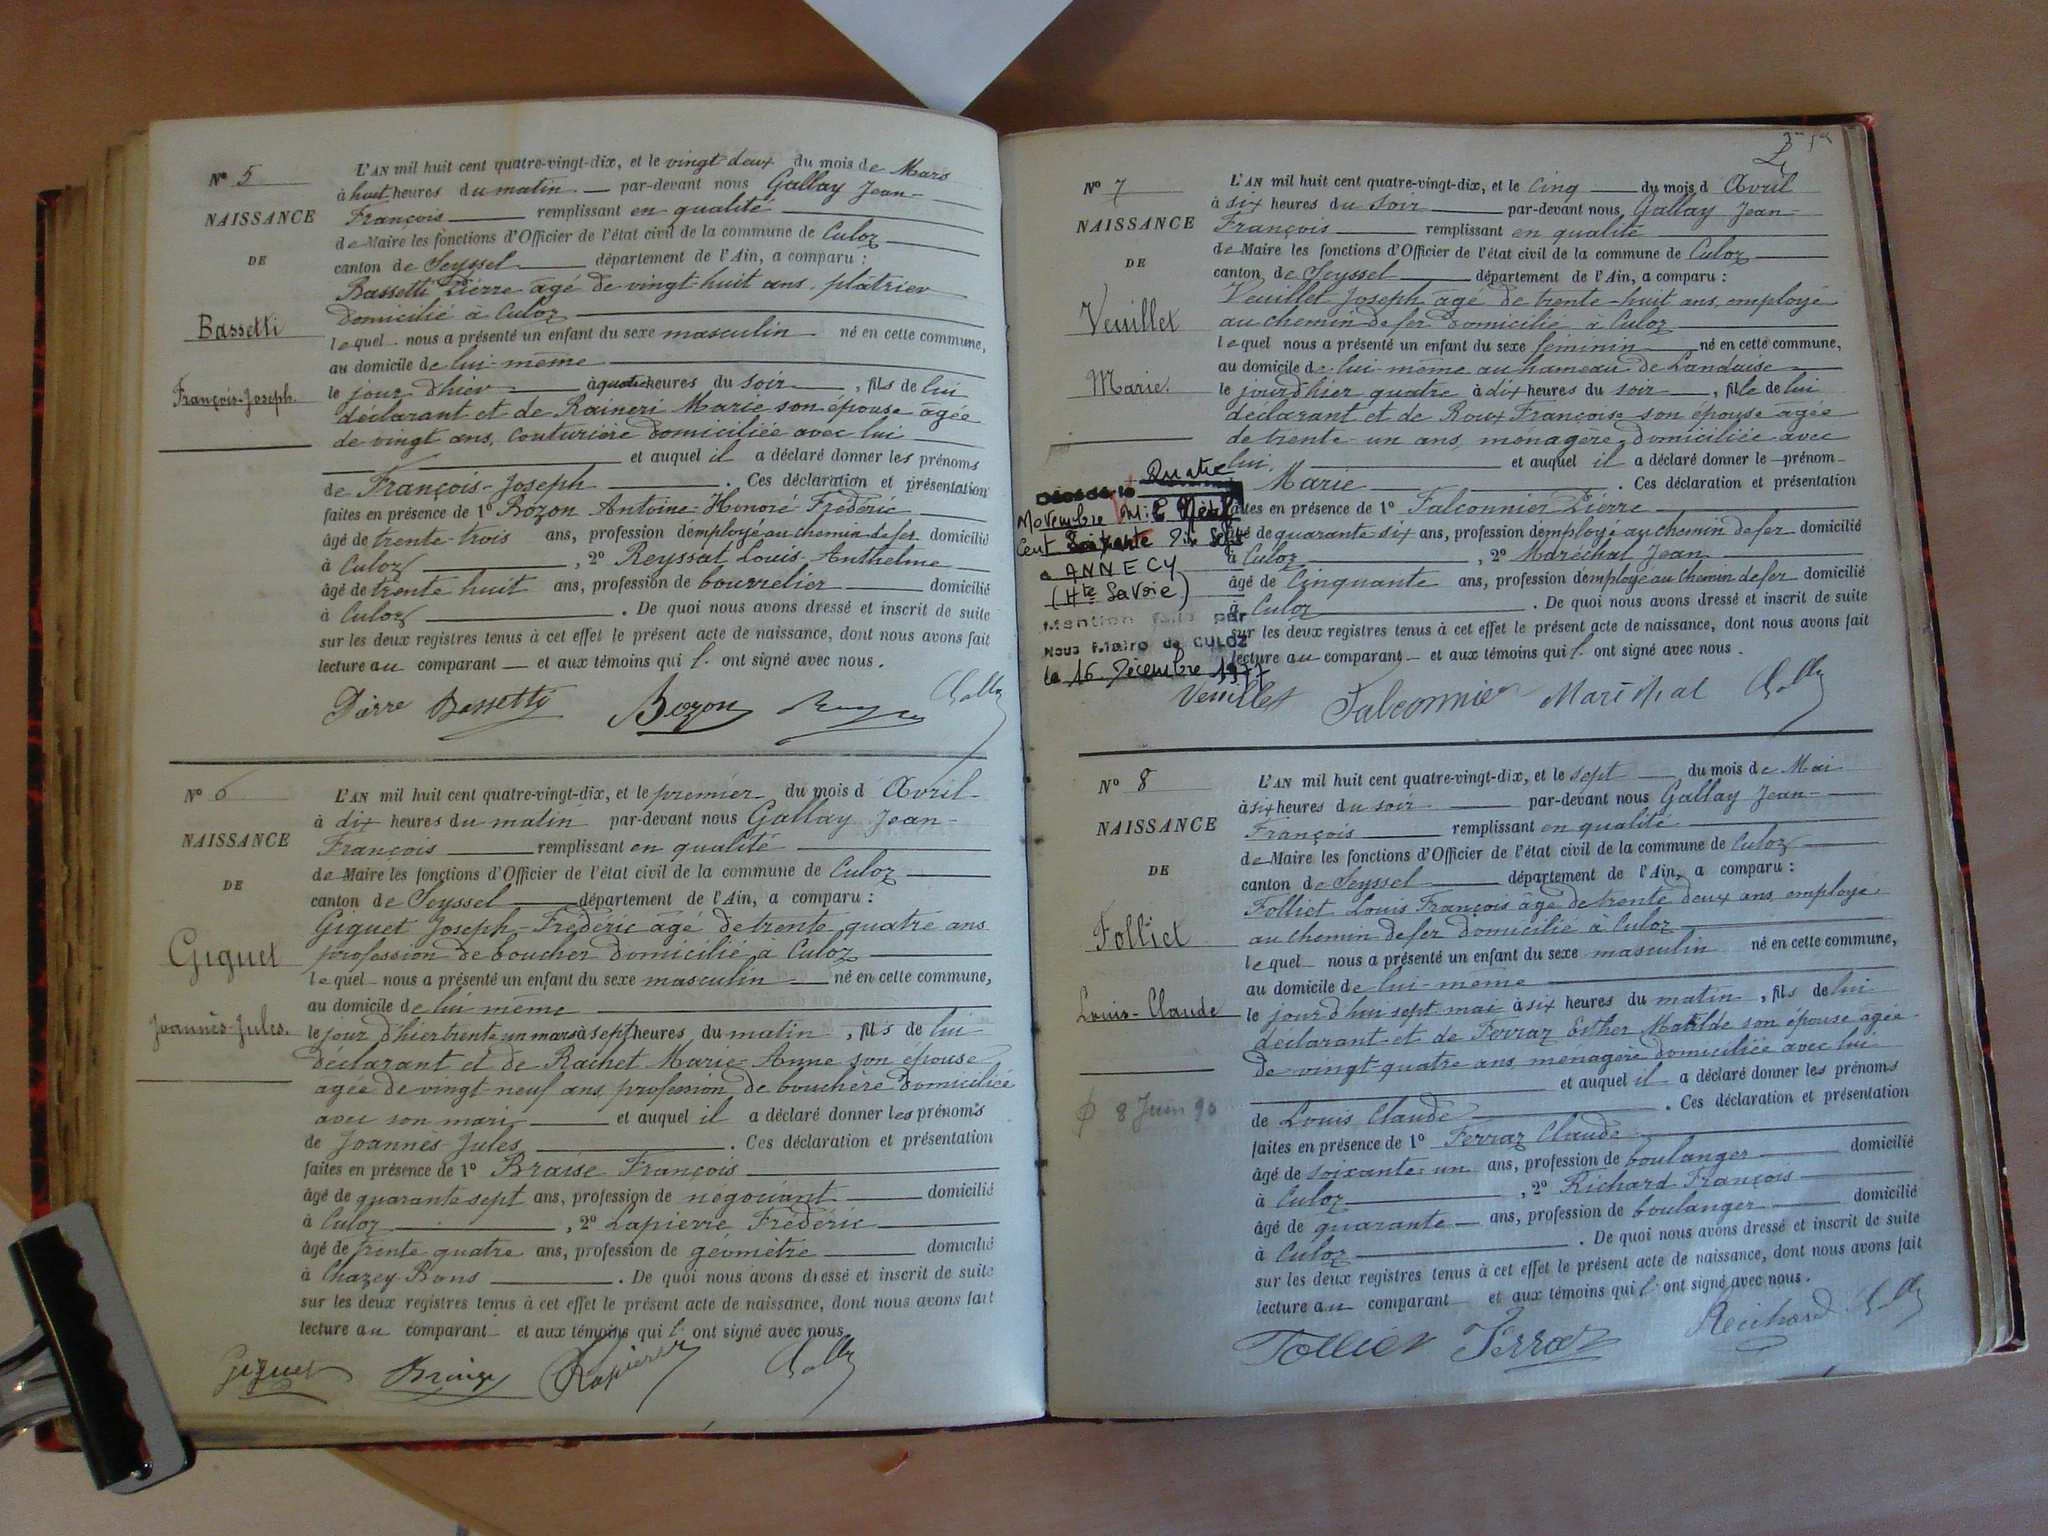 Nº 5
NAISSANCE
DE
Bassetti
François-Joseph.
L'AN mil huit cent quatre-vingt-dix, et le vingt deux du mois de Mars
à huit heures du matin par-devant nous Gallay Jean-
François remplissant en qualité
de Maire les fonctions d'Officier de l'état civil de la commune de Culoz
canton de Seyssel département de l'Ain, a comparu :
Bassetti Pierre âgé de vingt-huit ans, plâtrier
domicilié à Culoz
lequel nous a présenté un enfant du sexe masculin né en cette commune,
au domicile de lui-même
le jour d'hier à quatre heures du soir, fils de lui
déclarant et de Raineri Marie son épouse agée
de vingt ans, couturière domiciliée avec lui
et auquel il a déclaré donner les prénoms
de François-Joseph. Ces déclaration et présentation
faites en présence de 1º Bozon Antoine-Honoré Frédéric
âgé de trente-trois ans, profession d'employé au chemin de fer domicilié
à Culoz, 2º Reyssat Louis Anthelme
âgé de trente huit ans, profession de bourrelier domicilié
à Culoz. De quoi nous avons dressé et inscrit de suite
sur les deux registres tenus à cet effet le présent acte de naissance, dont nous avons fait
lecture au comparant et aux témoins qui l' ont signé avec nous.
Pierre Bassetti Bozon
Nº 6
NAISSANCE
DE
Giguet
Joannès-Jules.
L'AN mil huit cent quatre-vingt-dix, et le premier du mois d' Avril
à dix heures du matin par-devant nous Gallay Jean-
François remplissant en qualité
de Maire les fonctions d'Officier de l'état civil de la commune de Culoz
canton de Seyssel département de l'Ain, a comparu :
Giguet Joseph-Frédéric âgé de trente quatre ans
profession de boucher domicilié à Culoz
lequel nous a présenté un enfant du sexe masculin né en cette commune,
au domicile de lui-même
le jour d'hier trente un mars à sept heures du matin, fils de lui
déclarant et de Rachet Marie-Anne son épouse
agée de vingt neuf ans, profession de bouchère domiciliée
avec son mari et auquel il a déclaré donner les prénoms
de Joannès Jules. Ces déclaration et présentation
faites en présence de 1º Braise François
âgé de quarante sept ans, profession de négociant domicilié
à Culoz, 2º Lapierre Frédéric
âgé de trente quatre ans, profession de géomètre domicilié
à Chazey-Bons. De quoi nous avons dressé et inscrit de suite
sur les deux registres tenus à cet effet le présent acte de naissance, dont nous avons fait
lecture au comparant et aux témoins qui l' ont signé avec nous.
Giguet Lapierre
Nº 7
NAISSANCE
DE
Veuillet
Marie.
L'AN mil huit cent quatre-vingt-dix, et le cinq du mois d' Avril
à six heures du soir par-devant nous Gallay Jean-
François remplissant en qualité
de Maire les fonctions d'Officier de l'état civil de la commune de Culoz
canton de Seyssel département de l'Ain, a comparu :
Veuillet Joseph âgé de trente-huit ans, employé
au chemin de fer domicilié à Culoz
lequel nous a présenté un enfant du sexe féminin né en cette commune,
au domicile de lui-même au hameau de Landaise
le jour d'hier quatre à dix heures du soir, fille de lui
déclarant et de Roux Françoise son épouse agée
de trente-un ans, ménagère domiciliée avec
lui, et auquel il a déclaré donner le prénom
Marie. Ces déclaration et présentation
faites en présence de 1º Falconnier Pierre
âgé de quarante six ans, profession d'employé au chemin de fer domicilié
à Culoz, 2º Maréchal Jean
âgé de cinquante ans, profession d'employé au chemin de fer domicilié
à Culoz. De quoi nous avons dressé et inscrit de suite
sur les deux registres tenus à cet effet le présent acte de naissance, dont nous avons fait
lecture au comparant et aux témoins qui l' ont signé avec nous.
Veuillet Falconnier Maréchal
Décédée le Quatre
Novembre Mil Neuf
Cent Soixante Dix Sept
à ANNECY
(Hte Savoie)
Mention faite par
Nous Maire de CULOZ
le 16 Décembre 1977
Nº 8
NAISSANCE
DE
Folliet
Louis-Claude
8 Juin 90
L'AN mil huit cent quatre-vingt-dix, et le sept du mois de Mai
à six heures du soir par-devant nous Gallay Jean-
François remplissant en qualité
de Maire les fonctions d'Officier de l'état civil de la commune de Culoz
canton de Seyssel département de l'Ain, a comparu :
Folliet Louis François âgé de trente deux ans, employé
au chemin de fer domicilié à Culoz
lequel nous a présenté un enfant du sexe masculin né en cette commune,
au domicile de lui-même
le jour d'hui sept mai à six heures du matin, fils de lui
déclarant et de Ferraz Esther Matilde son épouse agée
de vingt-quatre ans, ménagère domiciliée avec lui
et auquel il a déclaré donner les prénoms
de Louis Claude. Ces déclaration et présentation
faites en présence de 1º Ferraz Claude
âgé de soixante-un ans, profession de boulanger domicilié
à Culoz, 2º Richard François
âgé de quarante ans, profession de boulanger domicilié
à Culoz. De quoi nous avons dressé et inscrit de suite
sur les deux registres tenus à cet effet le présent acte de naissance, dont nous avons fait
lecture au comparant et aux témoins qui l' ont signé avec nous.
Folliet Ferraz Reichard